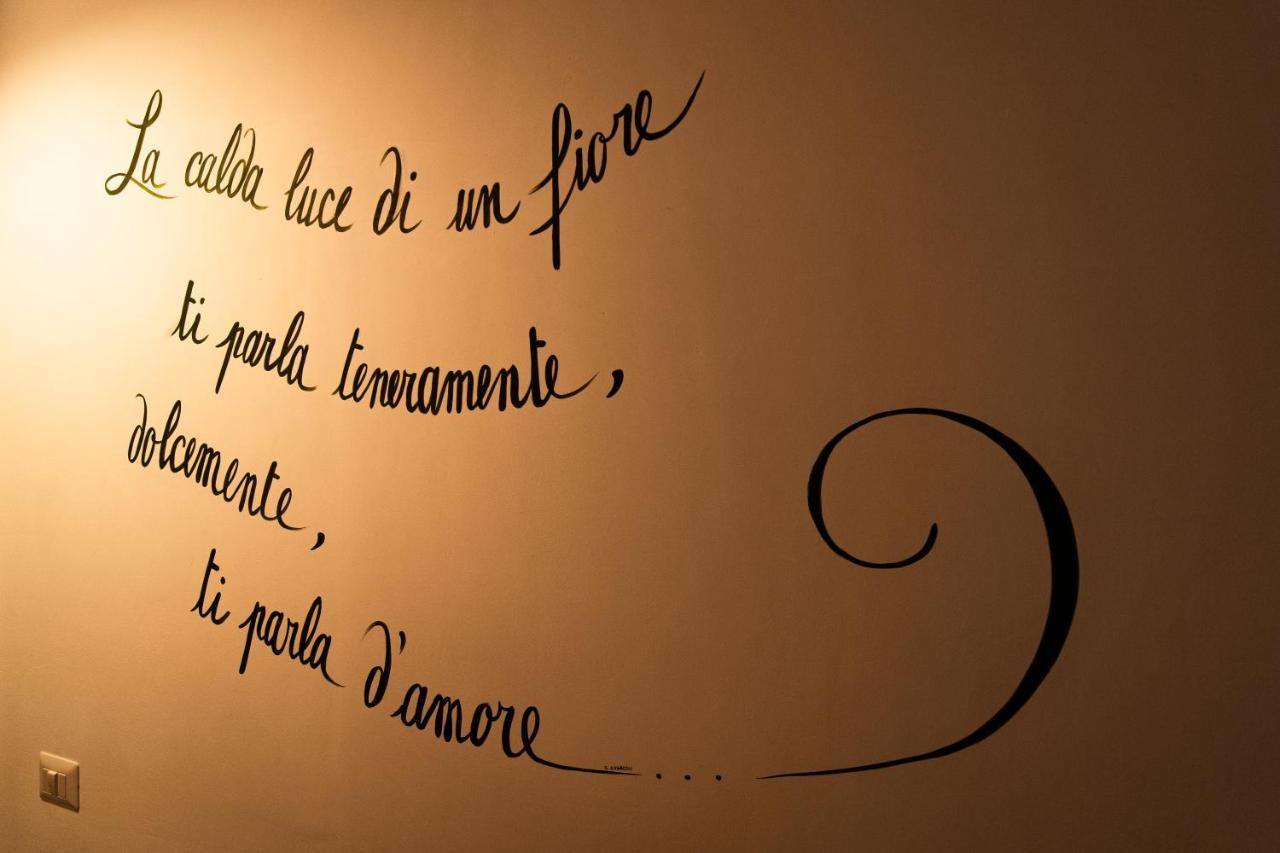 La calda luce di un fiore
ti parla teneramente,
dolcemente,
ti parla d'amore...